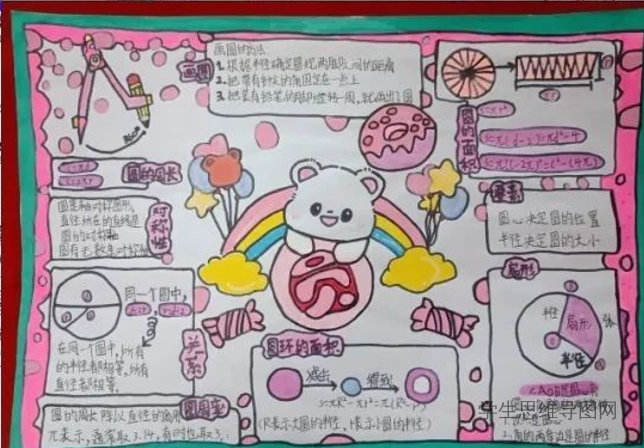 画圆
画圆的方法
1. 根据半径确定圆规两脚之间的距离
2. 把带有针尖的脚固定在一点上
3. 把装有铅笔的脚旋转一周,就画出了圆
圆的面积
圆的周长
对称性
圆是轴对称图形,
直径所在的直线是
圆的对称轴
圆有无数条对称轴
要素
圆心决定圆的位置
半径决定圆的大小
同一个圆中,
在同一个圆中,所有
的半径都相等,所有
直径都相等。
关系
扇形
半径
扇形
弧
半径
圆环的面积
减去
得到
S=πR²-πr²=π(R²-r²)
(R表示大圆的半径,r表示小圆的半径)
圆周率
圆的周长除以直径的商用
π表示,通常取3.14,
学生思维导图网